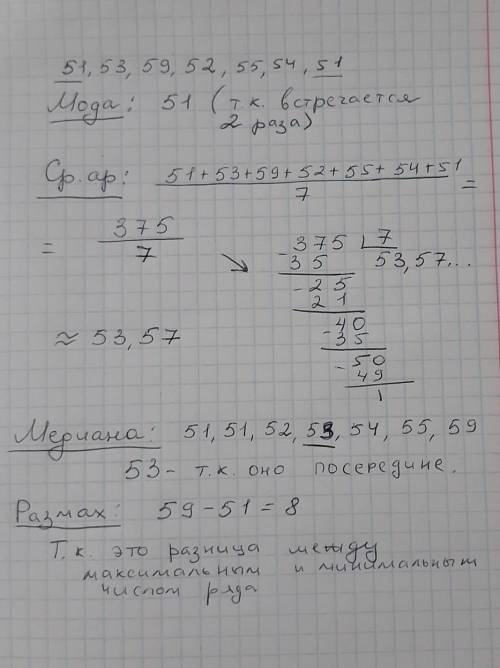 51, 53, 59, 52, 55, 54, 51
Мода: 51 (т.к. встречается
2 раза)
Ср.ар: 51+53+59+52+55+54+51
7
=
= 375
7
- 375 7
35 53,57...
- 25
21
- 40
35
- 50
49
1
≈ 53,57
Медиана: 51, 51, 52, 53, 54, 55, 59
53 - т.к. оно посередине.
Размах: 59 - 51 = 8
Т.к. это разница между
максимальным и минимальным
числом ряда